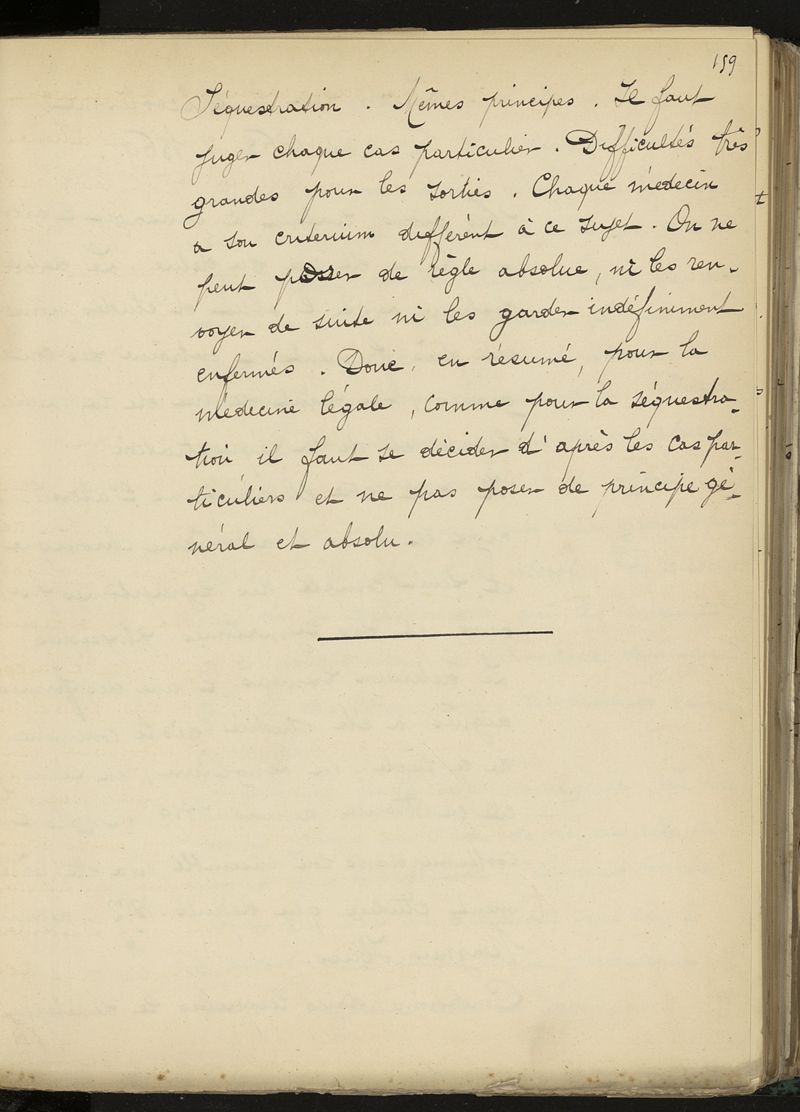 159
Séquestration. Mêmes principes. Il faut
juger chaque cas particulier. Difficultés très
grandes pour les sorties. Chaque médecin
a son criterium différent à ce sujet. On ne
peut poser de règle absolue, ni les ren-
voyer de suite ni les garder indéfiniment
enfermés. Donc, en résumé, pour la
médecine légale, comme pour la séquestra-
tion, il faut se décider d'après les cas par-
ticuliers et ne pas poser de principe gé-
néral et absolu.